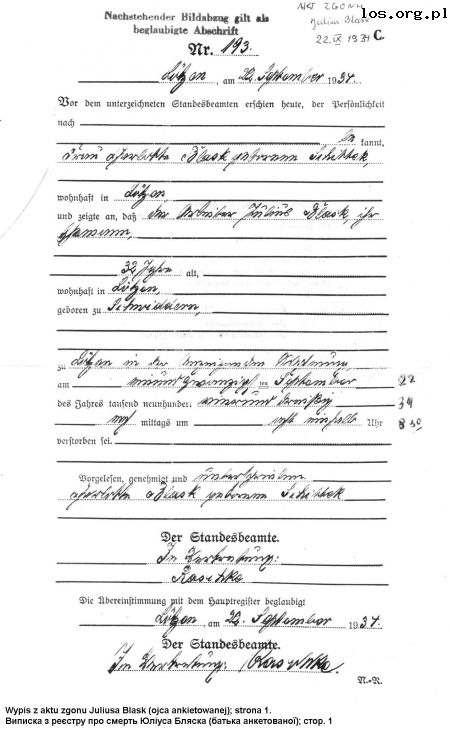 los.org.pl
AKT ZGONU
Julius Blask
22.IX 1934
C.
Nachstehender Bildabzug gilt als
beglaubigte Abschrift
Nr. 193.
Lötzen, am 22. September 1934.
Vor dem unterzeichneten Standesbeamten erschien heute, der Persönlichkeit
nach
be kannt,
Frau Charlotte Blask geborene
wohnhaft in Lötzen,
und zeigte an, daß der Arbeiter Julius Blask, ihr
Ehemann,
32 Jahre alt,
wohnhaft in Lötzen,
geboren zu Schwiddern,
zu Lötzen in der Wohnung
am ten September 22
des Jahres tausend neunhundert vierunddreißig 34
mittags um acht einhalb Uhr 8 30
verstorben sei.
Vorgelesen, genehmigt und unterschrieben
Charlotte Blask geborene
Der Standesbeamte.
In Vertretung:
Die Übereinstimmung mit dem Hauptregister beglaubigt
Lötzen, am 22. September 1934.
Der Standesbeamte.
In Vertretung:
Wypis z aktu zgonu Juliusa Blask (ojca ankietowanej); strona 1.
Виписка з реєстру про смерть Юліуса Бляска (батька анкетованої); стор. 1